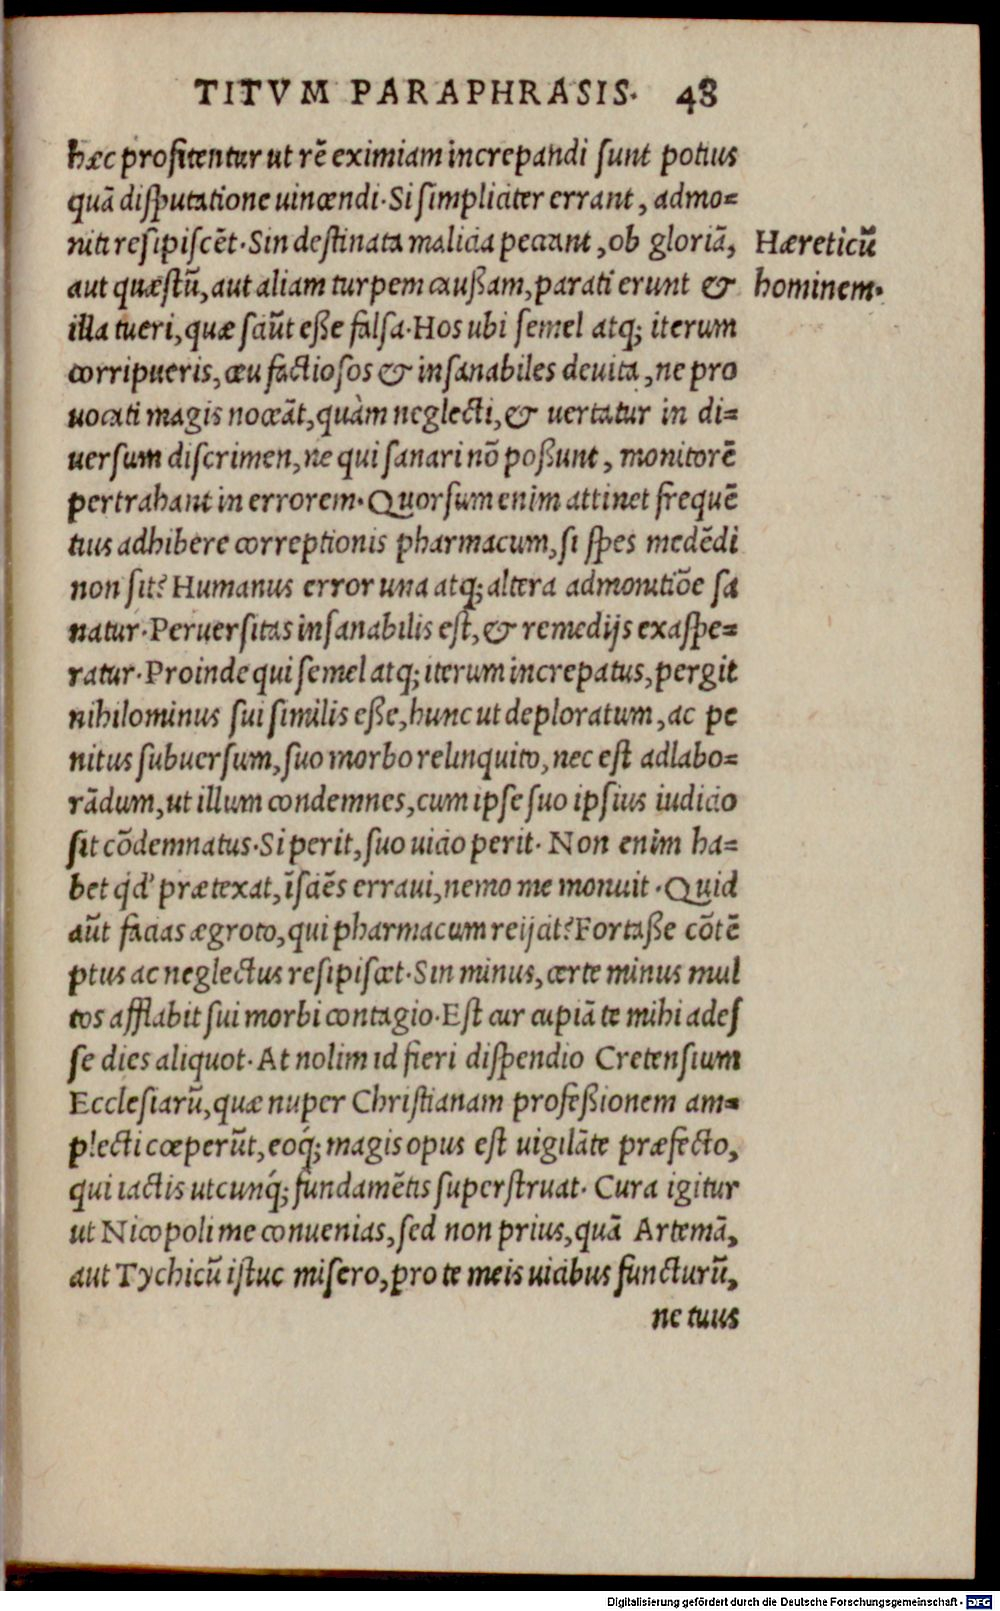 TITVM PARAPHRASIS. 48
hæc profitentur ut rē eximiam increpandi sunt potius
quā disputatione uincendi. Si simpliciter errant, admo=
niti resipiscēt. Sin destinata malicia peccant, ob gloriā,
Hæreticū
aut quæstū, aut aliam turpem caußam, parati erunt &
hominem.
illa tueri, quæ sciūt eße falsa. Hos ubi semel atq; iterum
corripueris, ceu factiosos & insanabiles deuita, ne pro
uocati magis noceāt, quàm neglecti, & uertatur in di=
uersum discrimen, ne qui sanari nō poßunt, monitorē
pertrahant in errorem. Quorsum enim attinet frequē
tius adhibere correptionis pharmacum, si spes medēdi
non sit? Humanus error una atq; altera admonitiōe sa
natur. Peruersitas insanabilis est, & remedijs exaspe=
ratur. Proinde qui semel atq; iterum increpatus, pergit
nihilominus sui similis eße, hunc ut deploratum, ac pe
nitus subuersum, suo morbo relinquito, nec est adlabo=
rādum, ut illum condemnes, cum ipse suo ipsius iudicio
sit cōdemnatus. Si perit, suo uicio perit. Non enim ha=
bet qd' prætexat, īsciēs erraui, nemo me monuit. Quid
aūt facias ægroto, qui pharmacum reijcit? Fortaße cōtē
ptus ac neglectus resipiscet. Sin minus, certe minus mul
tos afflabit sui morbi contagio. Est cur cupiā te mihi ades
se dies aliquot. At nolim id fieri dispendio Cretensium
Ecclesiarū, quæ nuper Christianam profeßionem am=
plecti cœperūt, eoq́; magis opus est uigilāte præfecto,
qui iactis utcunq́; fundamētis superstruat. Cura igitur
ut Nicopoli me conuenias, sed non prius, quā Artemā,
aut Tychicū istuc misero, pro te meis uicibus functurū,
ne tuus
Digitalisierung gefördert durch die Deutsche Forschungsgemeinschaft - DFG